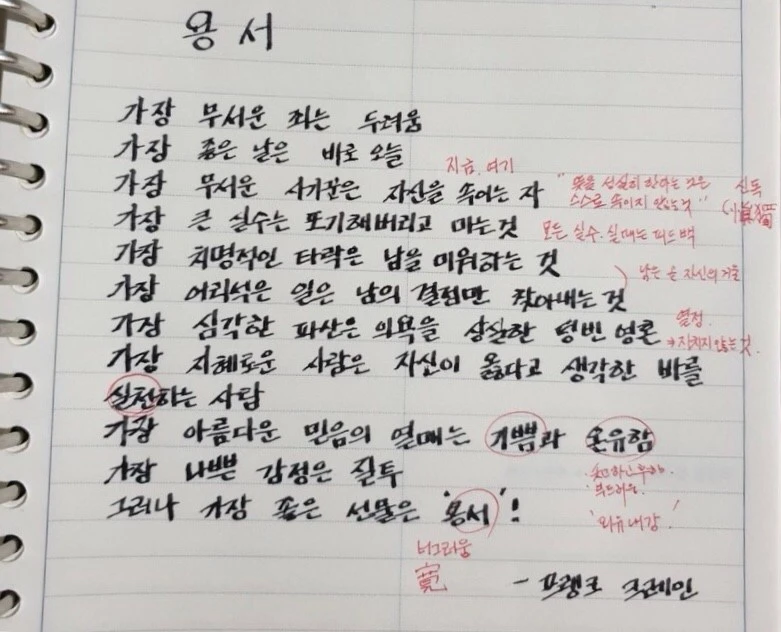 용서
가장 무서운 죄는 두려움
가장 좋은 날은 바로 오늘
지금, 여기
가장 무서운 사기꾼은 자신을 속이는 자
"뜻을 성실히 한다는 것은
스스로 속이지 않는 것"
신독
(愼獨)
가장 큰 실수는 포기해버리고 마는 것
모든 실수, 실패는 피드백
가장 치명적인 타락은 남을 미워하는 것
남은 곧 자신의 거울
가장 어리석은 일은 남의 결점만 찾아내는 것
가장 심각한 파산은 의욕을 상실한 텅빈 영혼
열정.
*잠기지 않는 것.
가장 지혜로운 사람은 자신이 옳다고 생각한 바를
실천하는 사람
가장 아름다운 믿음의 열매는 기쁨과 온유함
가장 나쁜 감정은 질투
부드러움.
그러나 가장 좋은 선물은 '용서'!
'외유내강'
너그러움
寬
- 프랭크 크레인